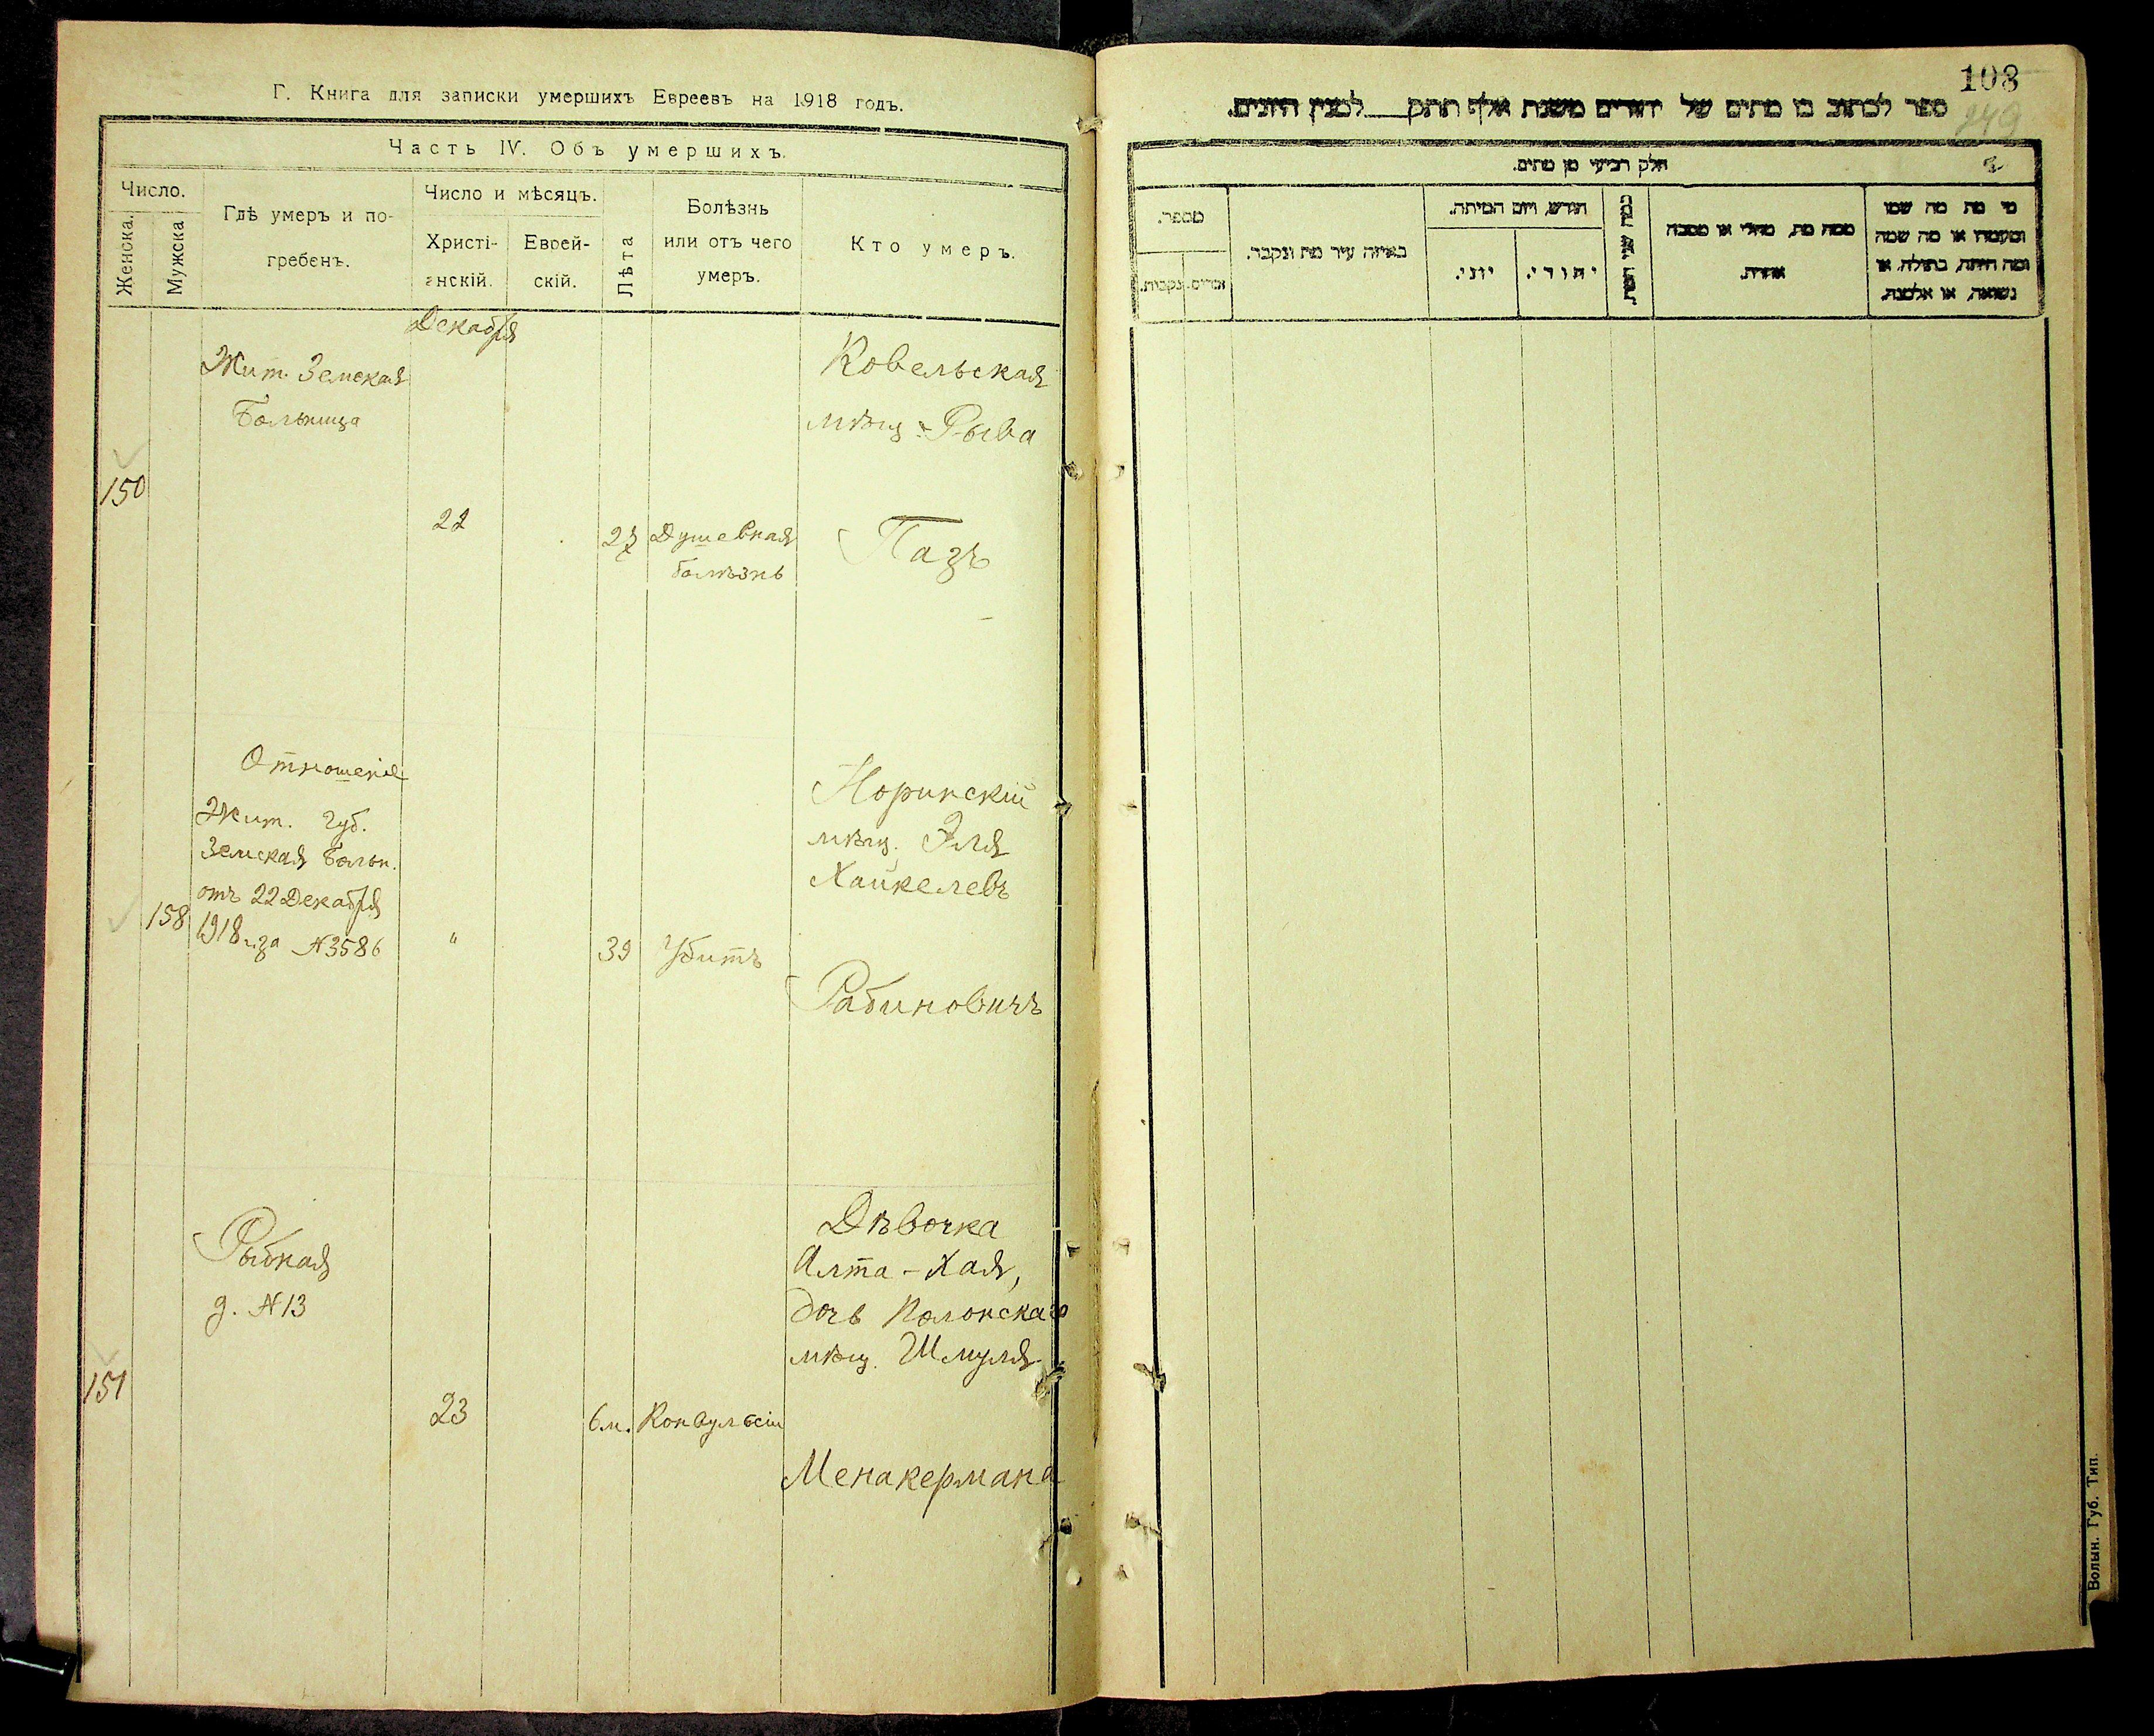 Г. Книга для записки умершихъ Евреевъ на 1918 годъ.
Часть IV. Объ умершихъ.
Число.
Женска.
Мужска
Гдѣ умеръ и по-
гребенъ.
Число и мѣсяцъ.
Христі-
анскій.
Еврей-
скій.
Лѣта
Болѣзнь
или отъ чего
умеръ.
Кто умеръ.
Декабря
150
Жит. Земская
Больница
22
27
Душевная
болѣзнь
Ковельская
мѣщ. Рыва
Пазъ
158
Отношеніе
Жит. Губ.
Земская Больн.
отъ 22 Декабря
1918 г. за №3586
"
39
Убитъ
Норинскій
мѣщ. Эля
Хайкелевъ
Рабиновичъ
151
Рыбная
д. №13
23
6 м.
Конвульсіи
Дѣвочка
Алта-Хая,
дочь Полонскаго
мѣщ. Шмуля
Менакермана
108
249
ספר לכתוב בו מתים של יהודים משנת אלף תתק לבנין היונים.
חלק רביעי מן מתים.
מספר.
זכרים.
נקבות.
באיזה עיר מת ונקבר.
חודש, ויום המיתה.
יוני.
יהודי.
כמה שני המת.
ממה מת, מחלי או מסבה
אחרת.
מי מת מה שמו
ומעמדו או מה שמה
ומה היתה, בתולה, או
נשואה, או אלמנה.
Волын. Губ. Тип.